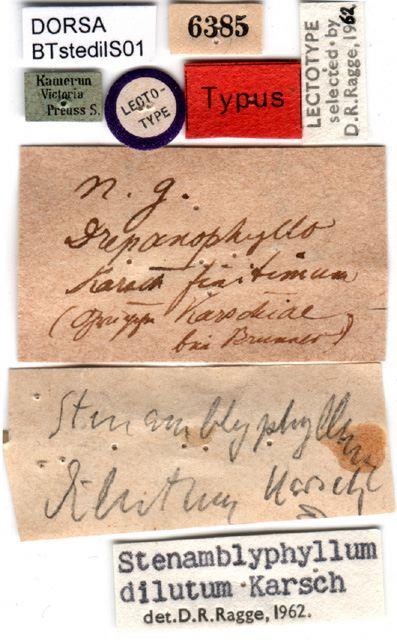 DORSA
BTstedilS01
6385
LECTOTYPE
selected by
D.R.Ragge, 1962
Kamerun
Victoria
Preuss S.
LECTO-
TYPE
Typus
n. g.
Drepanophyllo
Karsch finitimum
(Gruppe Karschiae
bei Brunner)
Stenamblyphyllum
dilutum Karsch
Stenamblyphyllum
dilutum Karsch
det.D.R.Ragge, 1962.